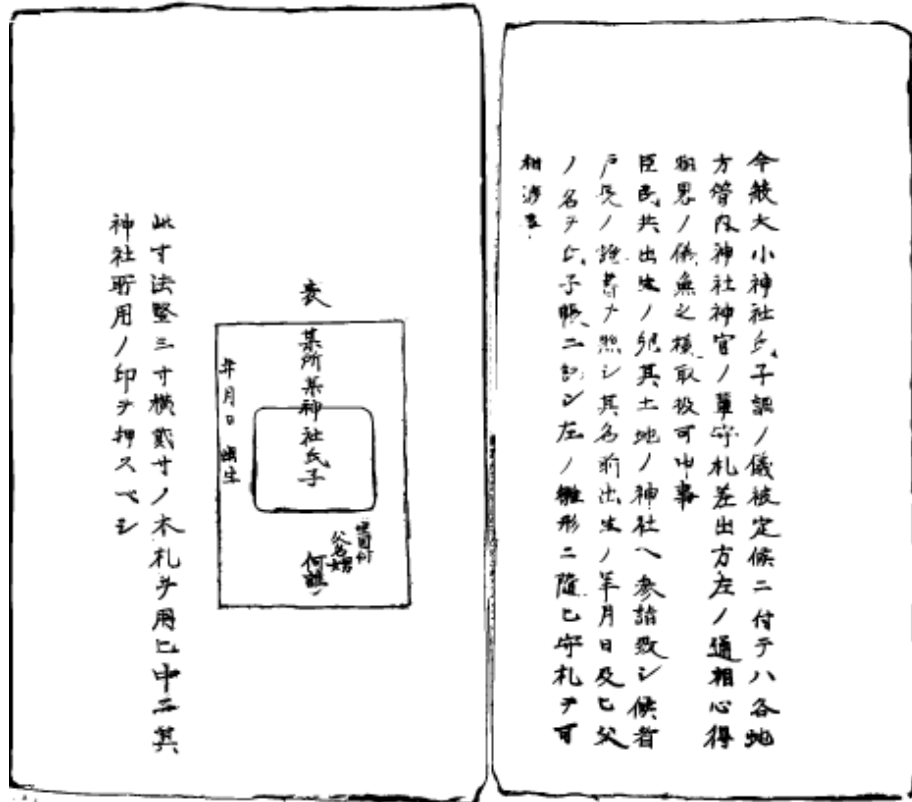 今般大小神社氏子調ノ儀被定候ニ付テハ各地
方管内神社神官ノ輩守札差出方左ノ通相心得
相男ノ儀無之様取扱可申事
臣民共出生ノ児其土地ノ神社ヘ参詣致シ候者
戸長ノ證書ヲ照シ其名前出生ノ年月日及ヒ父
ノ名ヲ氏子帳ニ記シ左ノ雛形ニ随ヒ守札ヲ可
相渡事
表
某所某神社氏子
父名
何誰
年月日 出生
此寸法竪三寸横貳寸ノ木札ヲ用ヒ中ニ其
神社所用ノ印ヲ押スヘシ